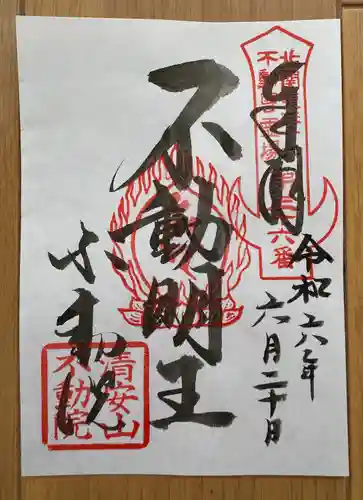 奉拝
令和六年
六月二十日
不動明王
不動院
北関東三十六
不動尊霊場第三十六番
清安山
不動院